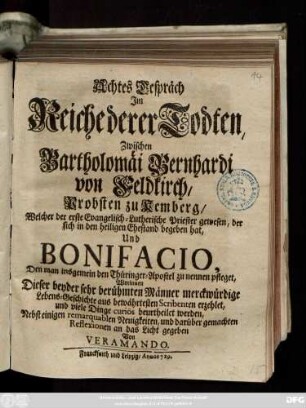 Achtes Gespräch
Im
Reiche derer Todten,
Zwischen
Bartholomäi Bernhardi
von Feldkirch/
Probsten zu Kemberg/
Welcher der erste Evangelisch-Lutherische Priester gewesen, der
sich in den heiligen Ehestand begeben hat,
Und
BONIFACIO,
Den man insgemein den Thüringer-Apostel zu nennen pfleget,
Worinnen
Dieser beyder sehr berühmten Männer merckwürdige
Lebens-Geschichte aus bewährtesten Scribenten erzehlet,
und viele Dinge curiös beurtheilet werden,
Nebst einigen remarquablen Neuigkeiten, und darüber gemachten
Reflexionen an das Licht gegeben
Von
VERAMANDO.
Franckfurth und Leipzig, Anno 1729.